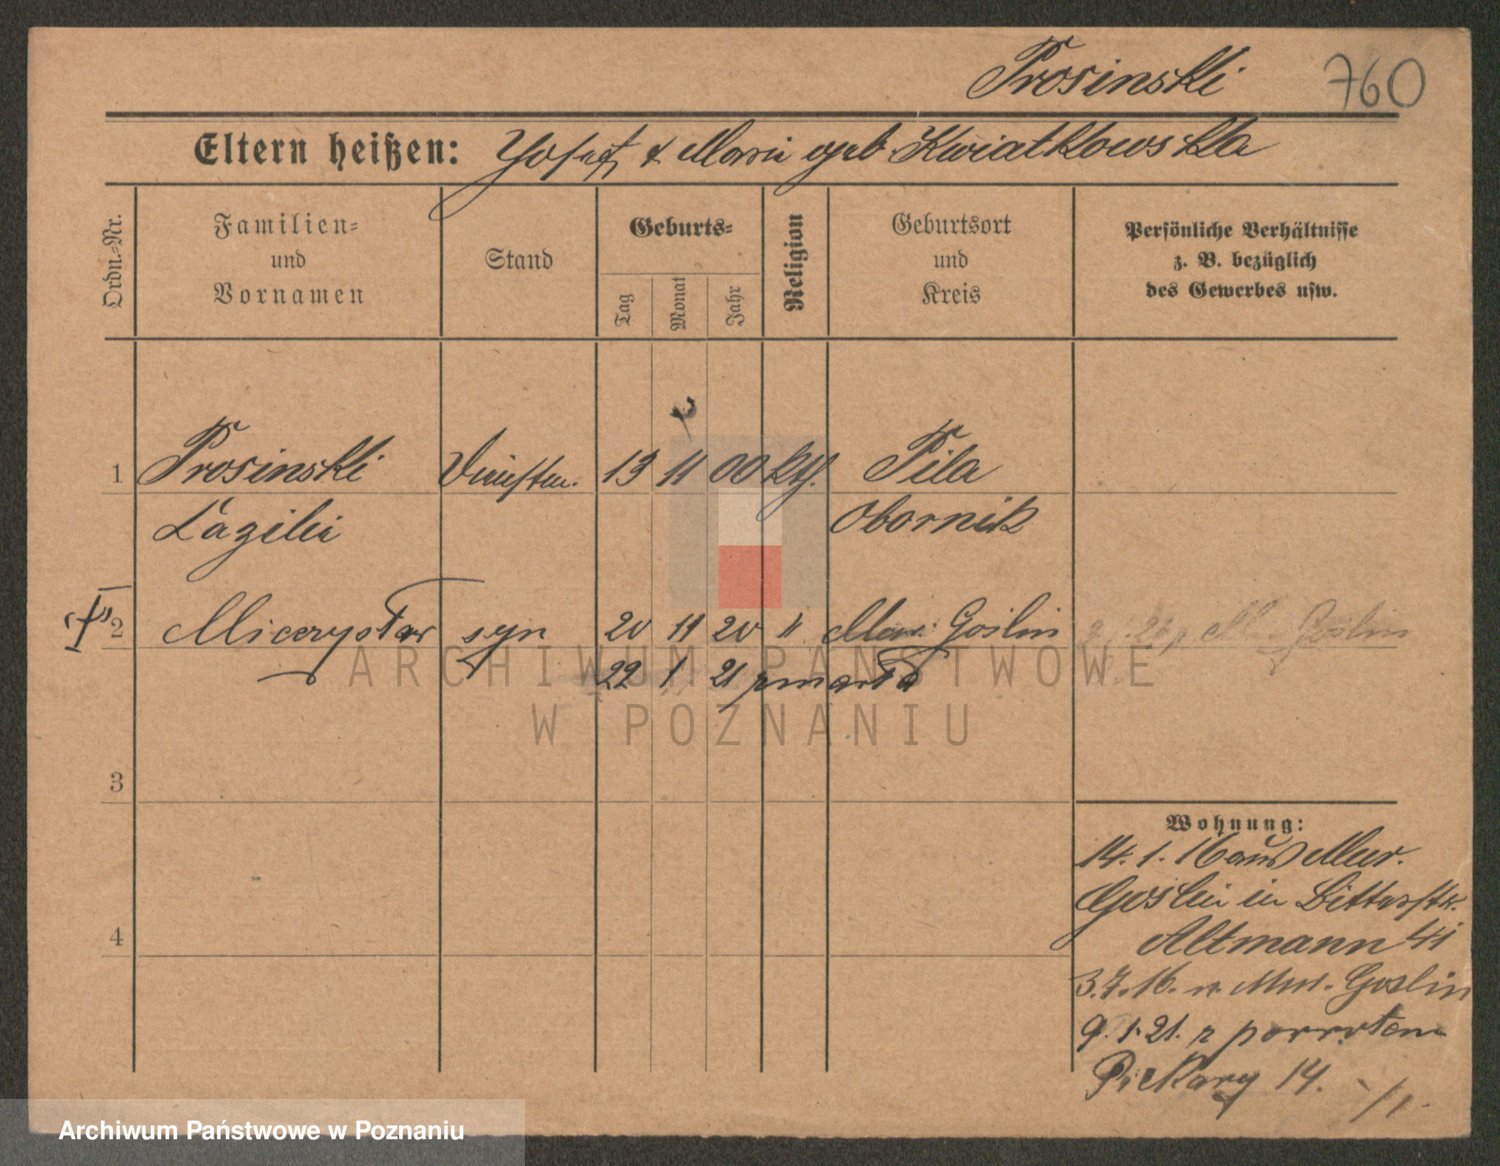 Prosinski 760
Eltern heißen: Josef & Marie geb. Kwiatkowska
Ordn.-Nr.
Familien-
und
Vornamen
Stand
Geburts-
Tag
Monat
Jahr
Religion
Geburtsort
und
Kreis
Persönliche Verhältnisse
z. B. bezüglich
des Gewerbes usw.
1 Prosinski 13 11 00 kth. Pila
Obornik
2 syn 20 11 20 " Mur. Goslin
M. Goslin
22 1 21 zmarła
ARCHIWUM PAŃSTWOWE
W POZNANIU
3
4
Wohnung:
14. 1. 16 aus Mur.
Goslin in Bitterstr.
Altmann 41
3.7.16. n. Mur. Goslin
9. 1. 21. z powrotem
Piekary 14.
Archiwum Państwowe w Poznaniu